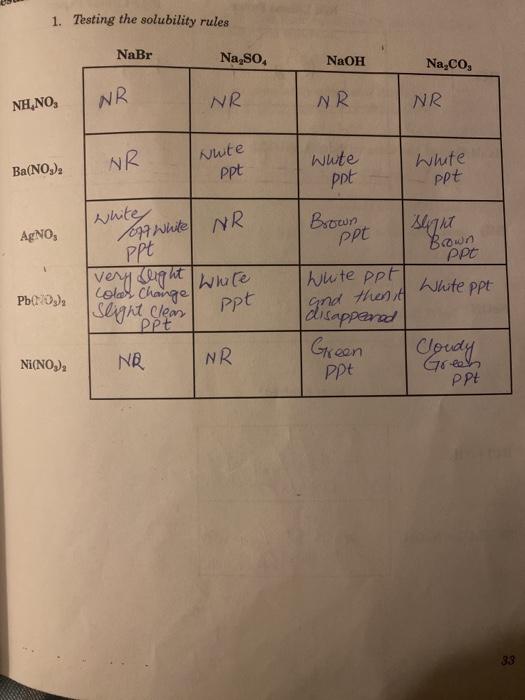 1. Testing the solubility rules
NaBr Na₂SO₄ NaOH Na₂CO₃
NH₄NO₃ NR NR NR NR
Ba(NO₃)₂ NR White ppt White ppt White ppt
AgNO₃ White/off white ppt NR Brown ppt Slight Brown ppt
Pb(NO₃)₂ very slight color change slight clear ppt White ppt White ppt and then it disappeared White ppt
Ni(NO₃)₂ NR NR Green ppt Cloudy Green ppt
33